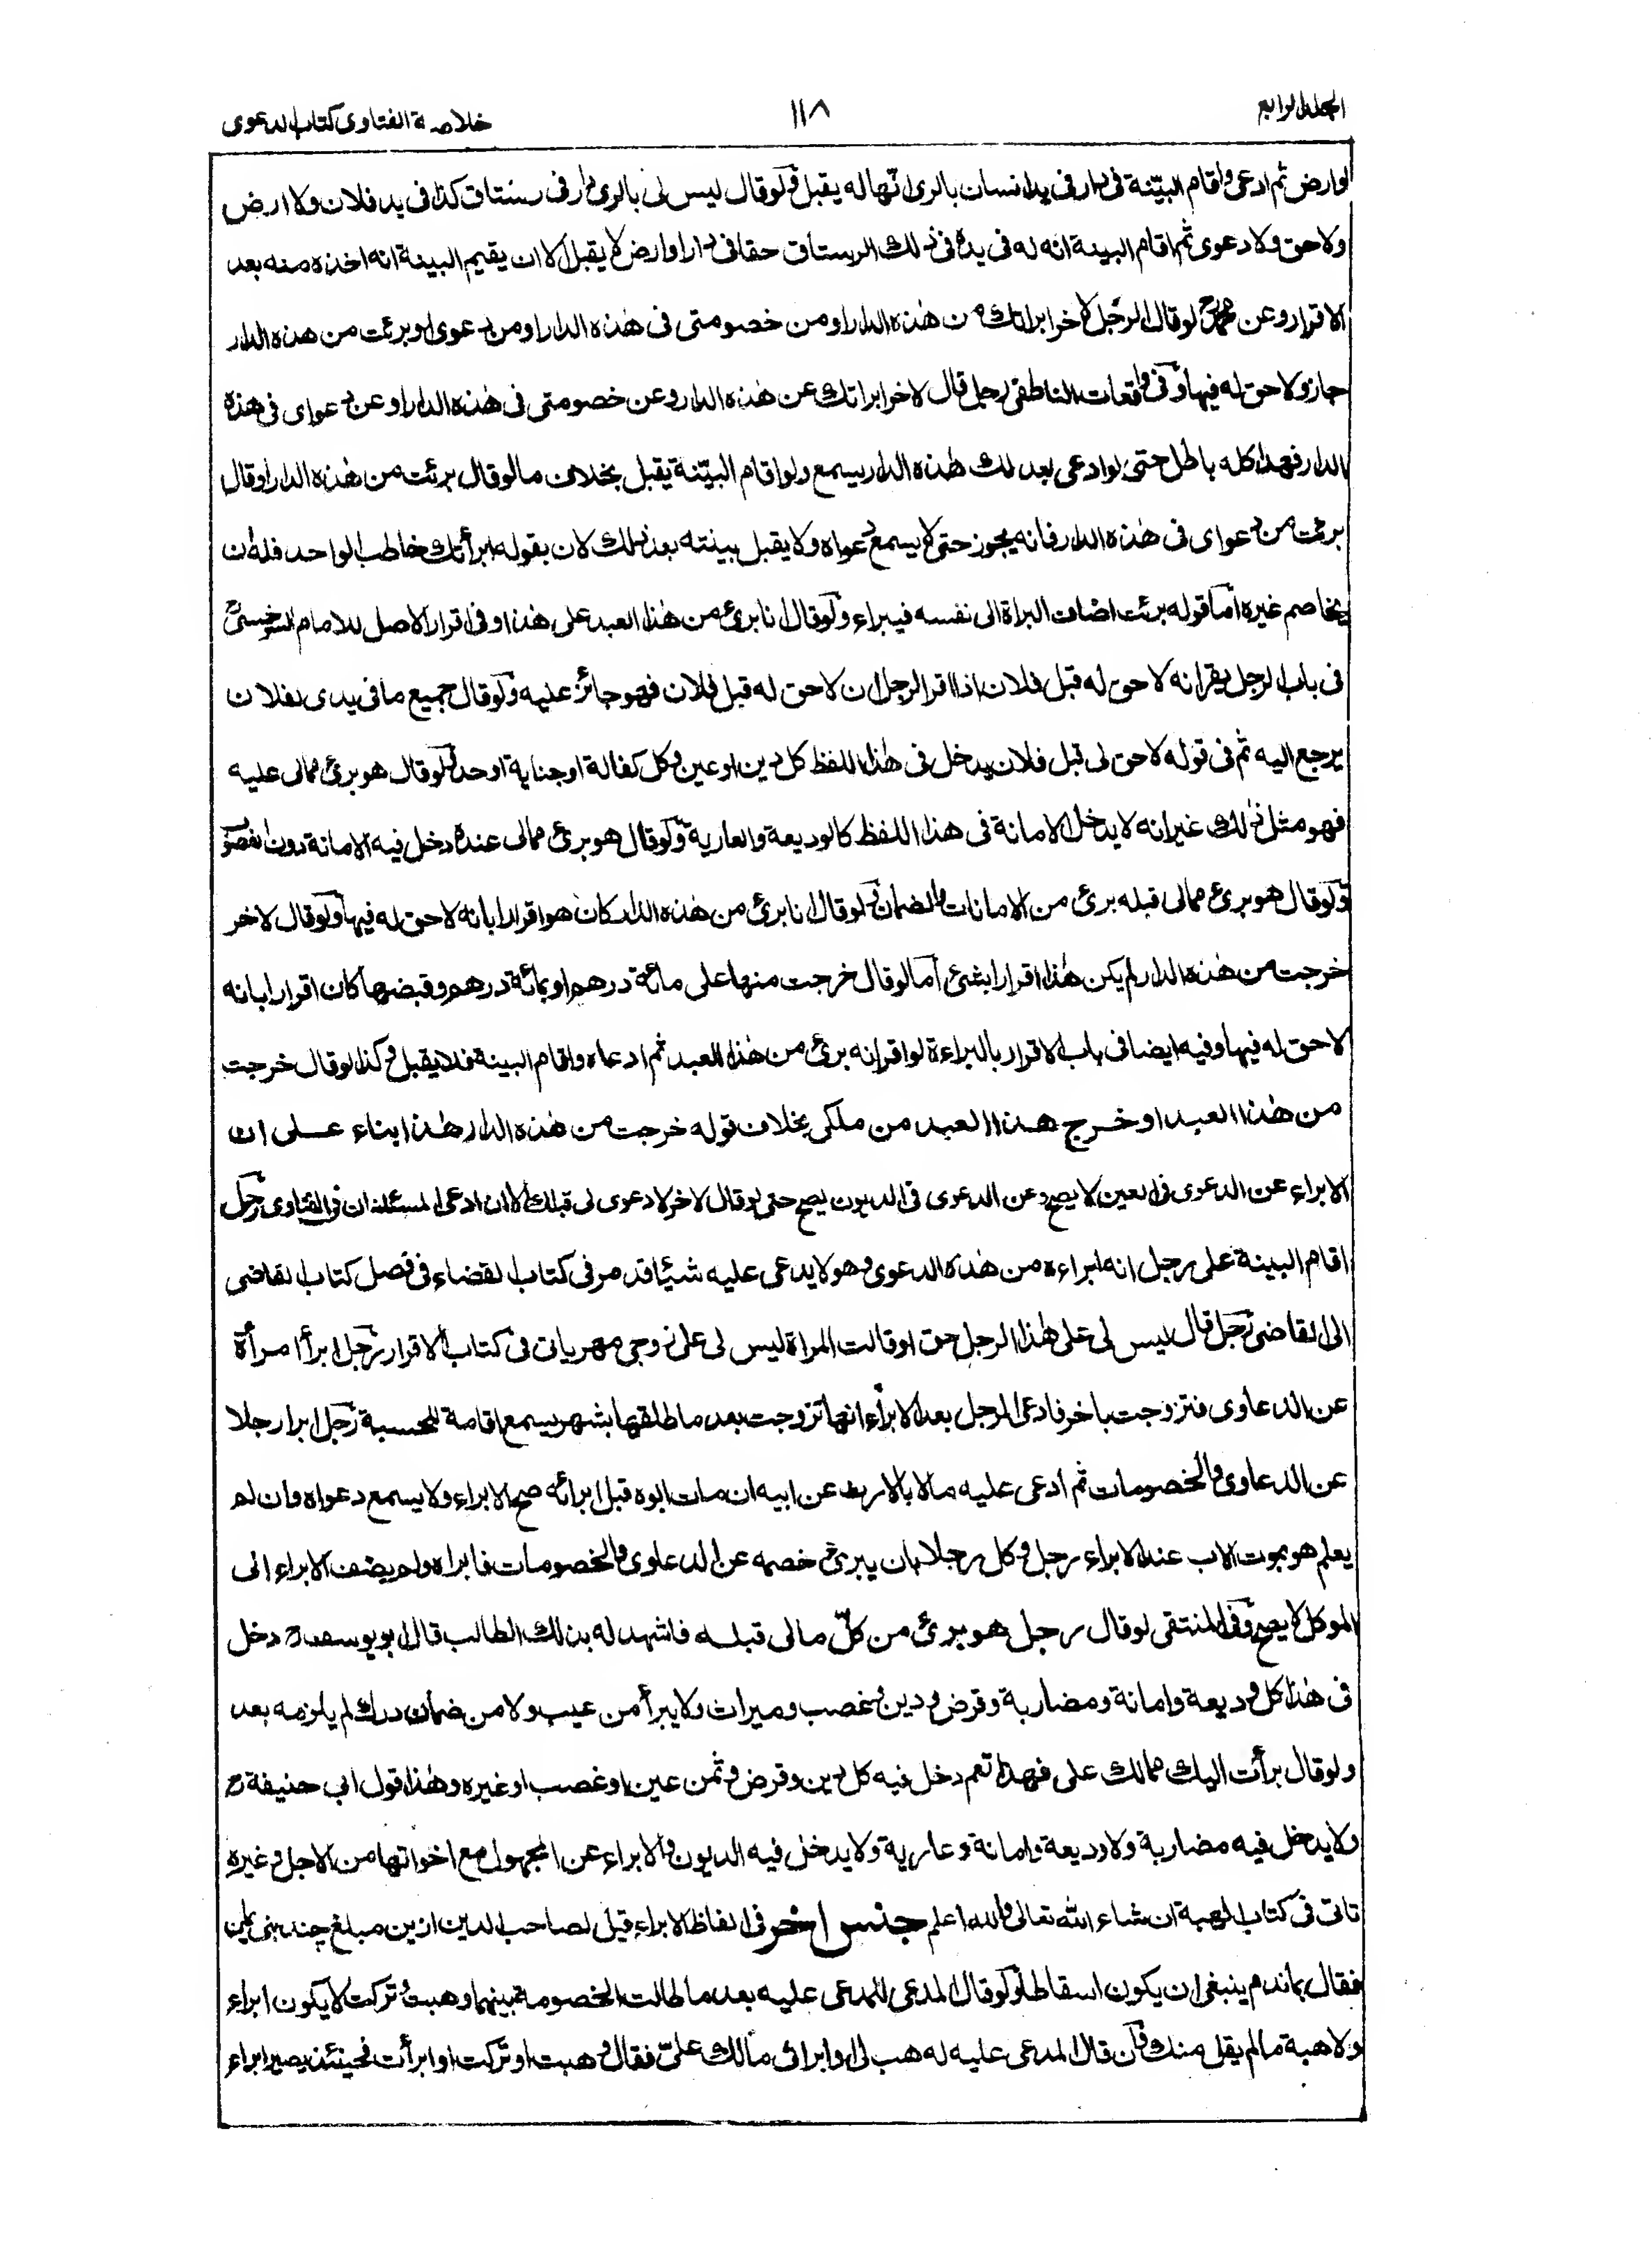 المجلد الرابع
١١٨
خلاصة الفتاوى كتاب الدعوى
او ارض ثم ادعى واقام البيّنة فى دار فى يد انسان بالرى انّها له يقبل ولو قال ليس لى بالرى دار فى رستاق كذا فى يد فلان ولا ارض
ولا حق ولا دعوى ثم اقام البينة انه له فى يده فى ذلك الرستاق حقا فى دار او ارض لا يقبل الا ان يقيم البينة انه اخذه منه بعد
الاقرار وعن محمدؒ لو قال الرجل لاخر ابراتك من هذه الدار او من خصومتى فى هذه الدار او من دعوى او برئت من هذه الدار
جاز ولا حق له فيها وفى واقعات الناطفى رجل قال لاخر ابراتك عن هذه الدار وعن خصومتى فى هذه الدار او عن دعواى فى هذه
الدار فهذا كله باطل حتى لو ادعى بعد ذلك هذه الدار يسمع ولو اقام البيّنة يقبل بخلاف ما لو قال برئت من هذه الدار او قال
برئت من دعواى فى هذه الدار فانه يجوز حتى لا يسمع دعواه ولا يقبل بينته بعد ذلك لان بقوله ابرأتك خاطب الواحد فله ان
يخاصم غيره اما قوله برئت اضاف البراة الى نفسه فيبراء ولو قال انا برئ من هذا العبد على هذا وفى اقرار الاصل للامام السرخسىؒ
فى باب الرجل يقر انه لا حق له قبل فلان اذا اقر الرجل ان لا حق له قبل فلان فهو جائز عليه ولو قال جميع ما فى يدى لفلان
يرجع اليه ثم فى قوله لا حق لى قبل فلان يدخل فى هذا اللفظ كل دين او عين وكل كفالة او جناية او حد ولو قال هو برئ مما لى عليه
فهو مثل ذلك غير انه لا يدخل الامانة فى هذا اللفظ كالوديعة والعارية ولو قال هو برئ مما لى عنده دخل فيه الامانة دون
ولو قال هو برئ مما لى قبله برئ من الامانات والضمان ولو قال انا برئ من هذه الدار كان هو اقرارا بانه لا حق له فيها ولو قال لاخر
خرجت من هذه الدار لم يكن هذا اقرارا بشئ اما لو قال خرجت منها على مائة درهم او بمائة درهم وقبضها كان اقرارا بانه
لا حق له فيها وفيه ايضا فى باب الاقرار بالبراءة لو اقر انه برئ من هذا العبد ثم ادعاه واقام البينة فلا يقبل وكذا لو قال خرجت
من هذا العبد او خرج هذا العبد من ملكى بخلاف قوله خرجت من هذه الدار هذا بناء على ان
الابراء عن الدعوى فى العين لا يصح وعن الدعوى فى الديون يصح حتى لو قال لاخر لا دعوى لى قبلك الا ان ادعى المسئلتان فى الفتاوى رجل
اقام البينة على رجل انه ابراءه من هذه الدعوى وهو لا يدعى عليه شيئا قد مر فى كتاب القضاء فى فصل كتاب القاضى
الى القاضى رجل قال ليس لى على هذا الرجل حق او قالت المراة ليس لى على زوجى مهر ياتى فى كتاب الاقرار رجل ابرأ امرأة
عن الدعاوى فتزوجت باخر فادعى الرجل بعد الابراء انها تزوجت بعد ما طلقها بشهر يسمع اقامة للحسبة رجل ابرا رجلا
عن الدعاوى والخصومات ثم ادعى عليه مالا بالارث عن ابيه ان مات ابوه قبل ابرائه صح الابراء ولا يسمع دعواه وان لم
يعلم هو بموت الاب عند الابراء رجل وكل رجلا بان يبرئ خصمه عن الدعاوى والخصومات فابراه ولم يضف الابراء الى
الموكل لا يصح وفى المنتقى لو قال رجل هو برئ من كلّ ما لى قبله فاشهد له بذلك الطالب قال ابو يوسفؒ دخل
فى هذا كل وديعة وامانة ومضاربة وقرض ودين وغصب وميراث ولا يبرأ من عيب ولا من ضمان درك لم يلزمه بعد
ولو قال برأت اليك مما لك على فهذا نعم دخل فيه كل دين وقرض وثمن عين او غصب او غيره وهذا قول ابى حنيفةؒ
ولا يدخل فيه مضاربة ولا وديعة وامانة وعارية ولا يدخل فيه الديون والابراء عن المجهول مع اخواتها من الاجل وغيره
تاتى فى كتاب الهبة ان شاء الله تعالى والله اعلم جنس اخر فى الفاظ الابراء قيل لصاحب الدين ازين مبلغ چند بنى
فقال بماندم ينبغى ان يكون اسقاطا ولو قال المدعى للمدعى عليه بعد ما طالت الخصومة بينهما وهبت وتركت لا يكون ابراء
ولا هبة ما لم يقل منك وان قال المدعى عليه له هب لى او ابرانى مالك علىّ فقال وهبت او تركت او ابرأت فحينئذ يصير ابراء